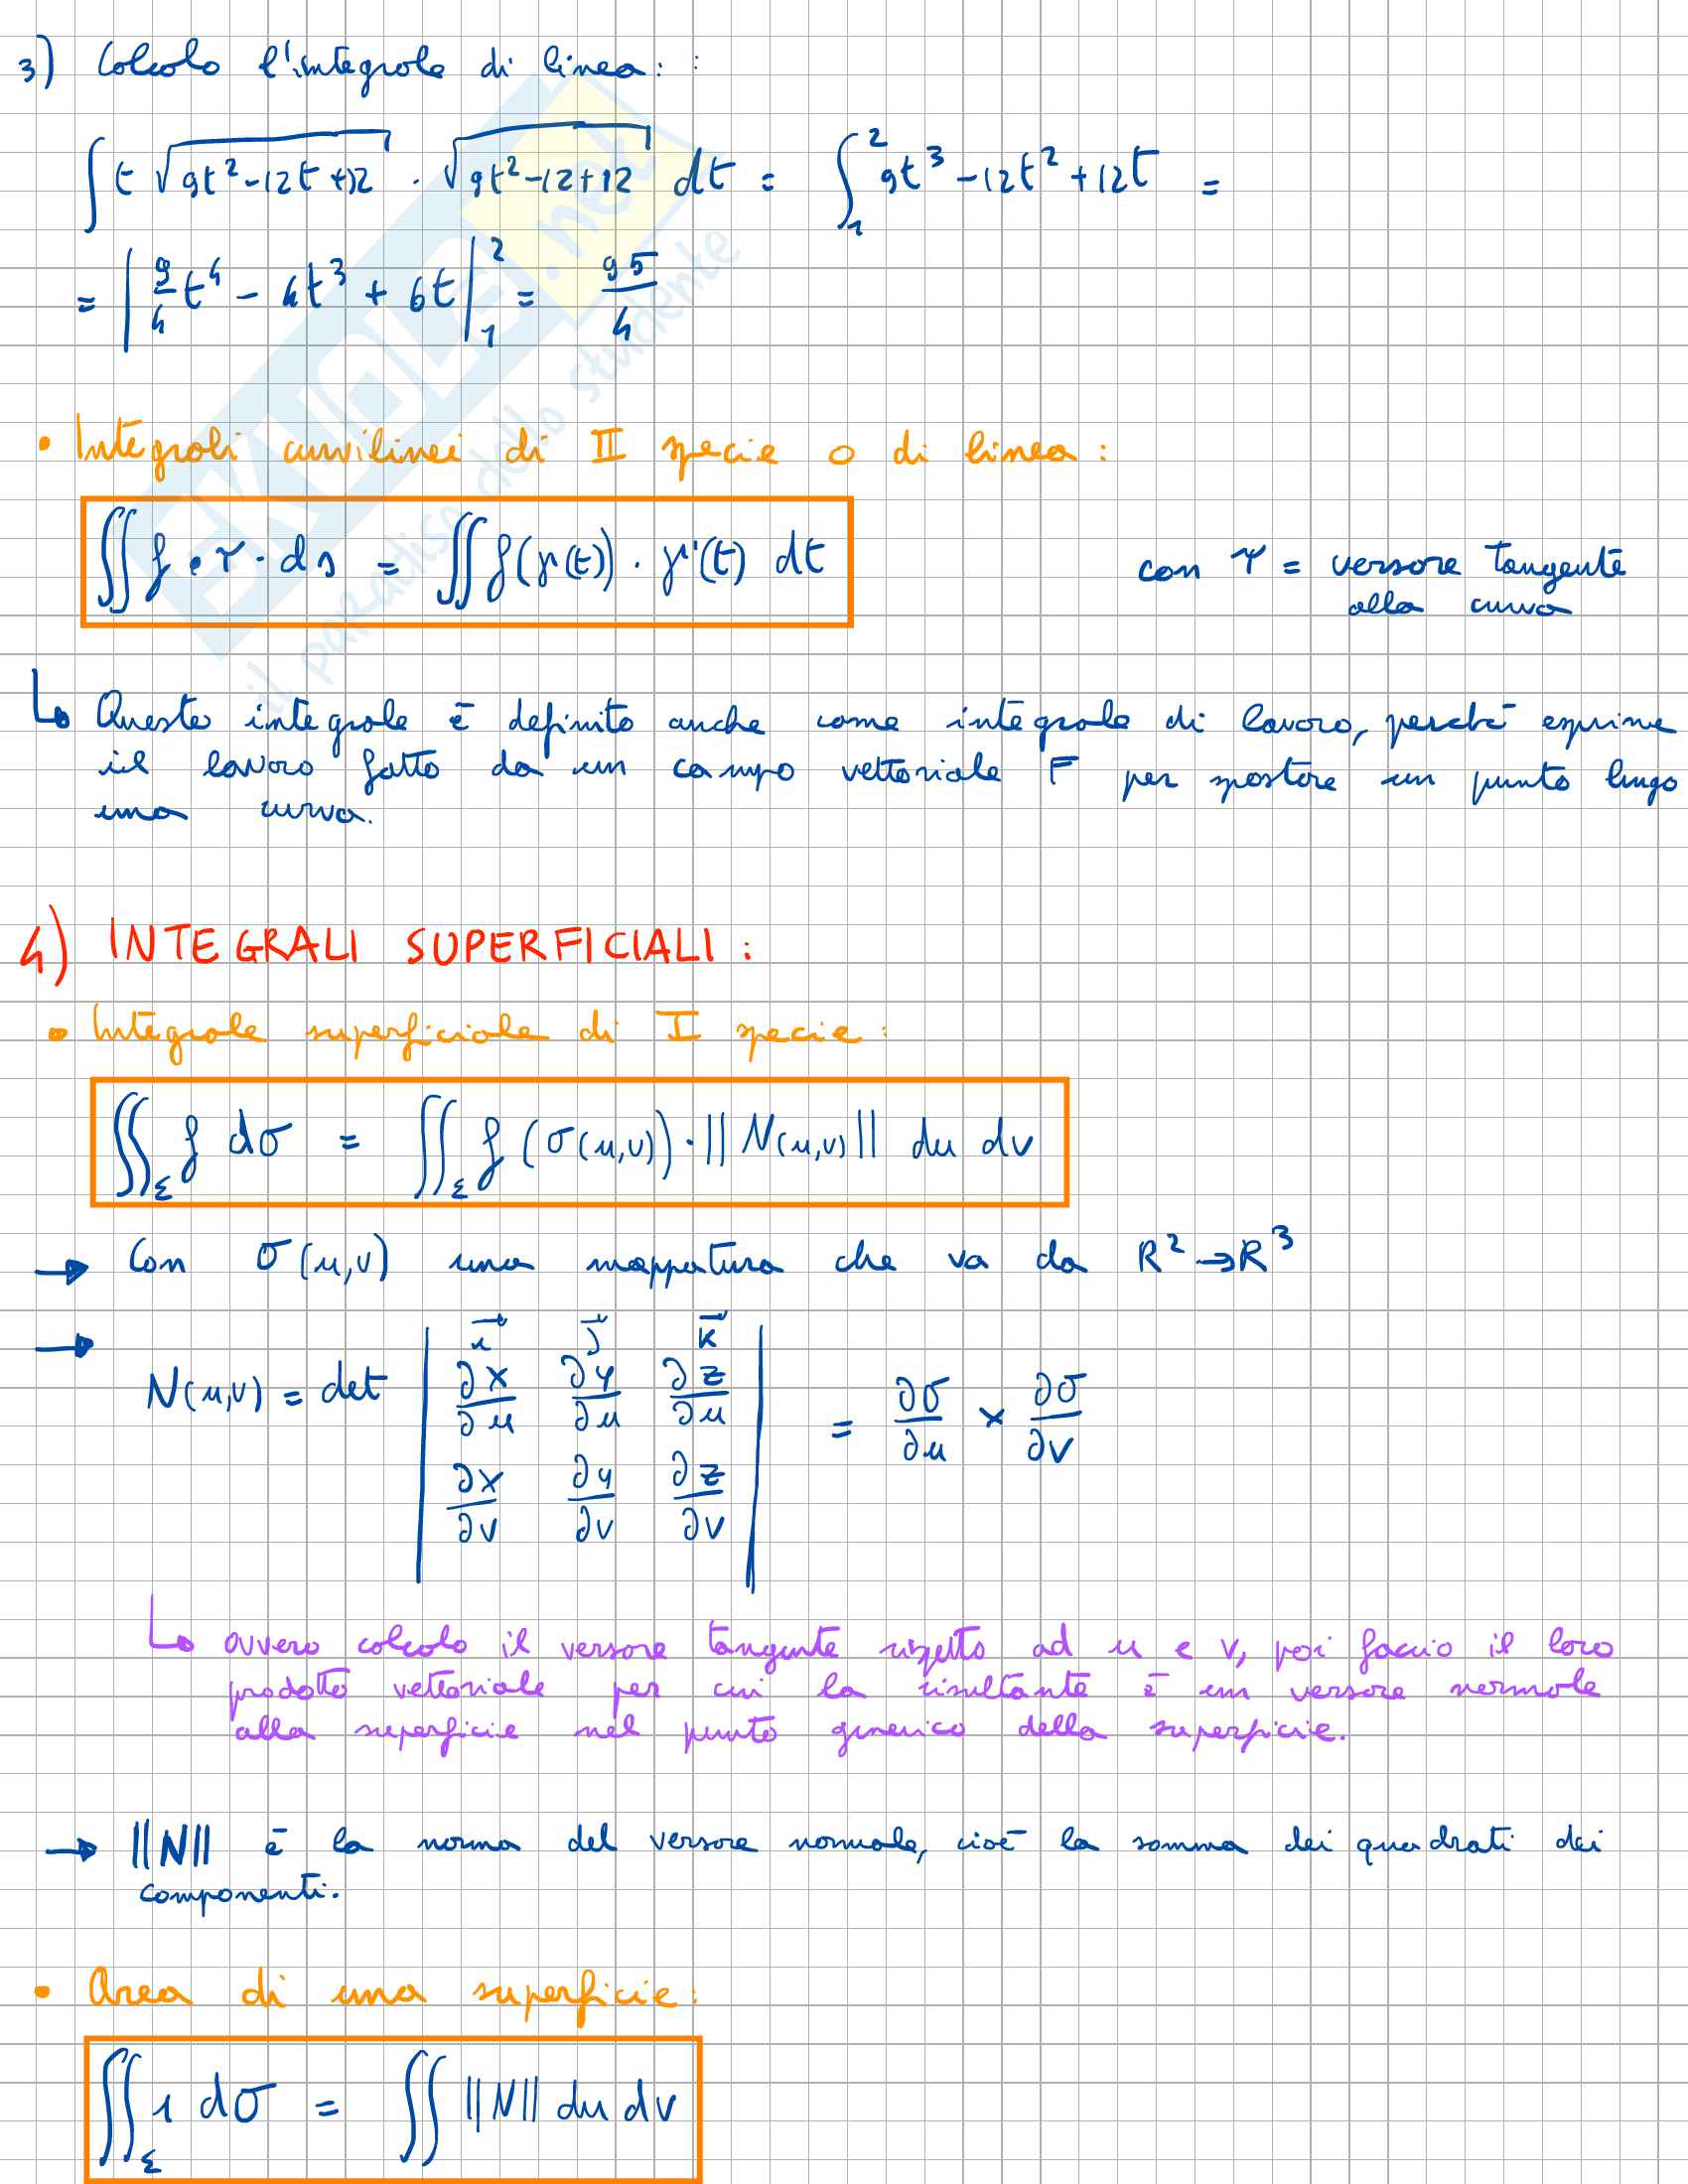 3) Calcolo l'integrale di linea: :
∫ t √(9t²-12t+12) · √(9t²-12+12) dt = ∫₁² 9t³-12t²+12t =
= | 9/4 t⁴ - 4t³ + 6t |₁² = 95/4
• Integrali curvilinei di II specie o di linea:
∬ f • τ · ds = ∬ f(γ(t)) · γ'(t) dt
con τ = versore tangente
alla curva
↳ Questo integrale è definito anche come integrale di lavoro, perché esprime
il lavoro fatto da un campo vettoriale F per spostare un punto lungo
una curva.
4) INTEGRALI SUPERFICIALI:
• Integrale superficiale di I specie:
∬_Σ f dσ = ∬_Σ f(σ(u,v)) · ||N(u,v)|| du dv
→ Con σ(u,v) una mappatura che va da R² → R³
→ N(u,v) = det | i⃗ j⃗ k⃗ |
| ∂x/∂u ∂y/∂u ∂z/∂u | = ∂σ/∂u × ∂σ/∂v
| ∂x/∂v ∂y/∂v ∂z/∂v |
↳ ovvero calcolo il versore tangente rispetto ad u e v, poi faccio il loro
prodotto vettoriale per cui la risultante è un versore normale
alla superficie nel punto generico della superficie.
→ ||N|| è la norma del versore normale, cioè la somma dei quadrati dei
componenti.
• Area di una superficie:
∬_Σ 1 dσ = ∬ ||N|| du dv
SKUOLA.net
il paradiso dello studente